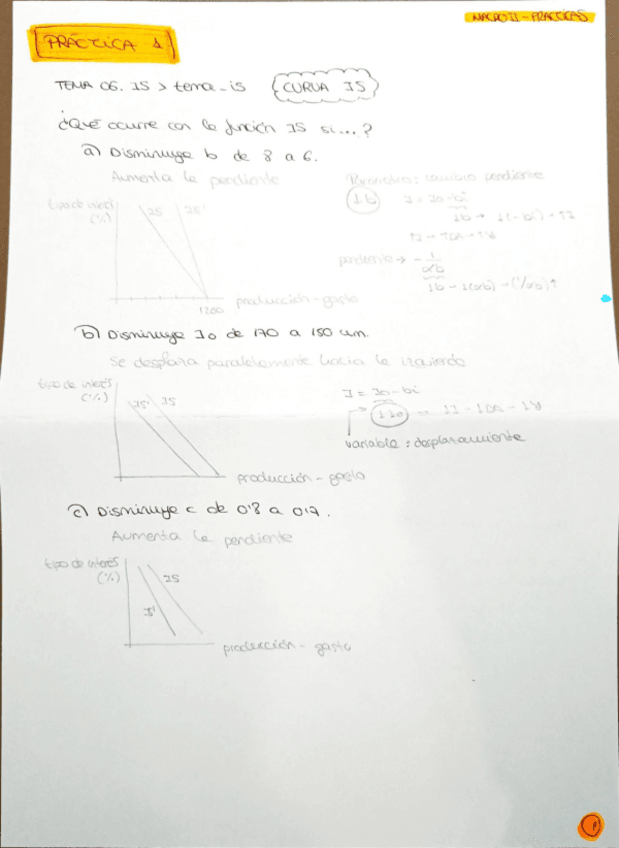 MACRO II - PRACTICAS
PRÁCTICA 1
TEMA 06. IS > tema_is CURVA IS
¿Qué ocurre con la función IS si...?
a) Disminuye b de 8 a 6.
Aumenta la pendiente
Parámetro: cambio pendiente
tipo de interés
(%)
IS IS'
↓b
I = Io - bi
pendiente → - 1/αb
1200
producción - gasto
b) Disminuye Io de 170 a 150 um.
Se desplaza paralelamente hacia la izquierda
tipo de interés
(%)
IS' IS
I = Io - bi
↓Io
variable: desplazamiento
producción - gasto
c) Disminuye c de 0'8 a 0'7.
Aumenta la pendiente
tipo de interés
(%)
IS
producción - gasto
1